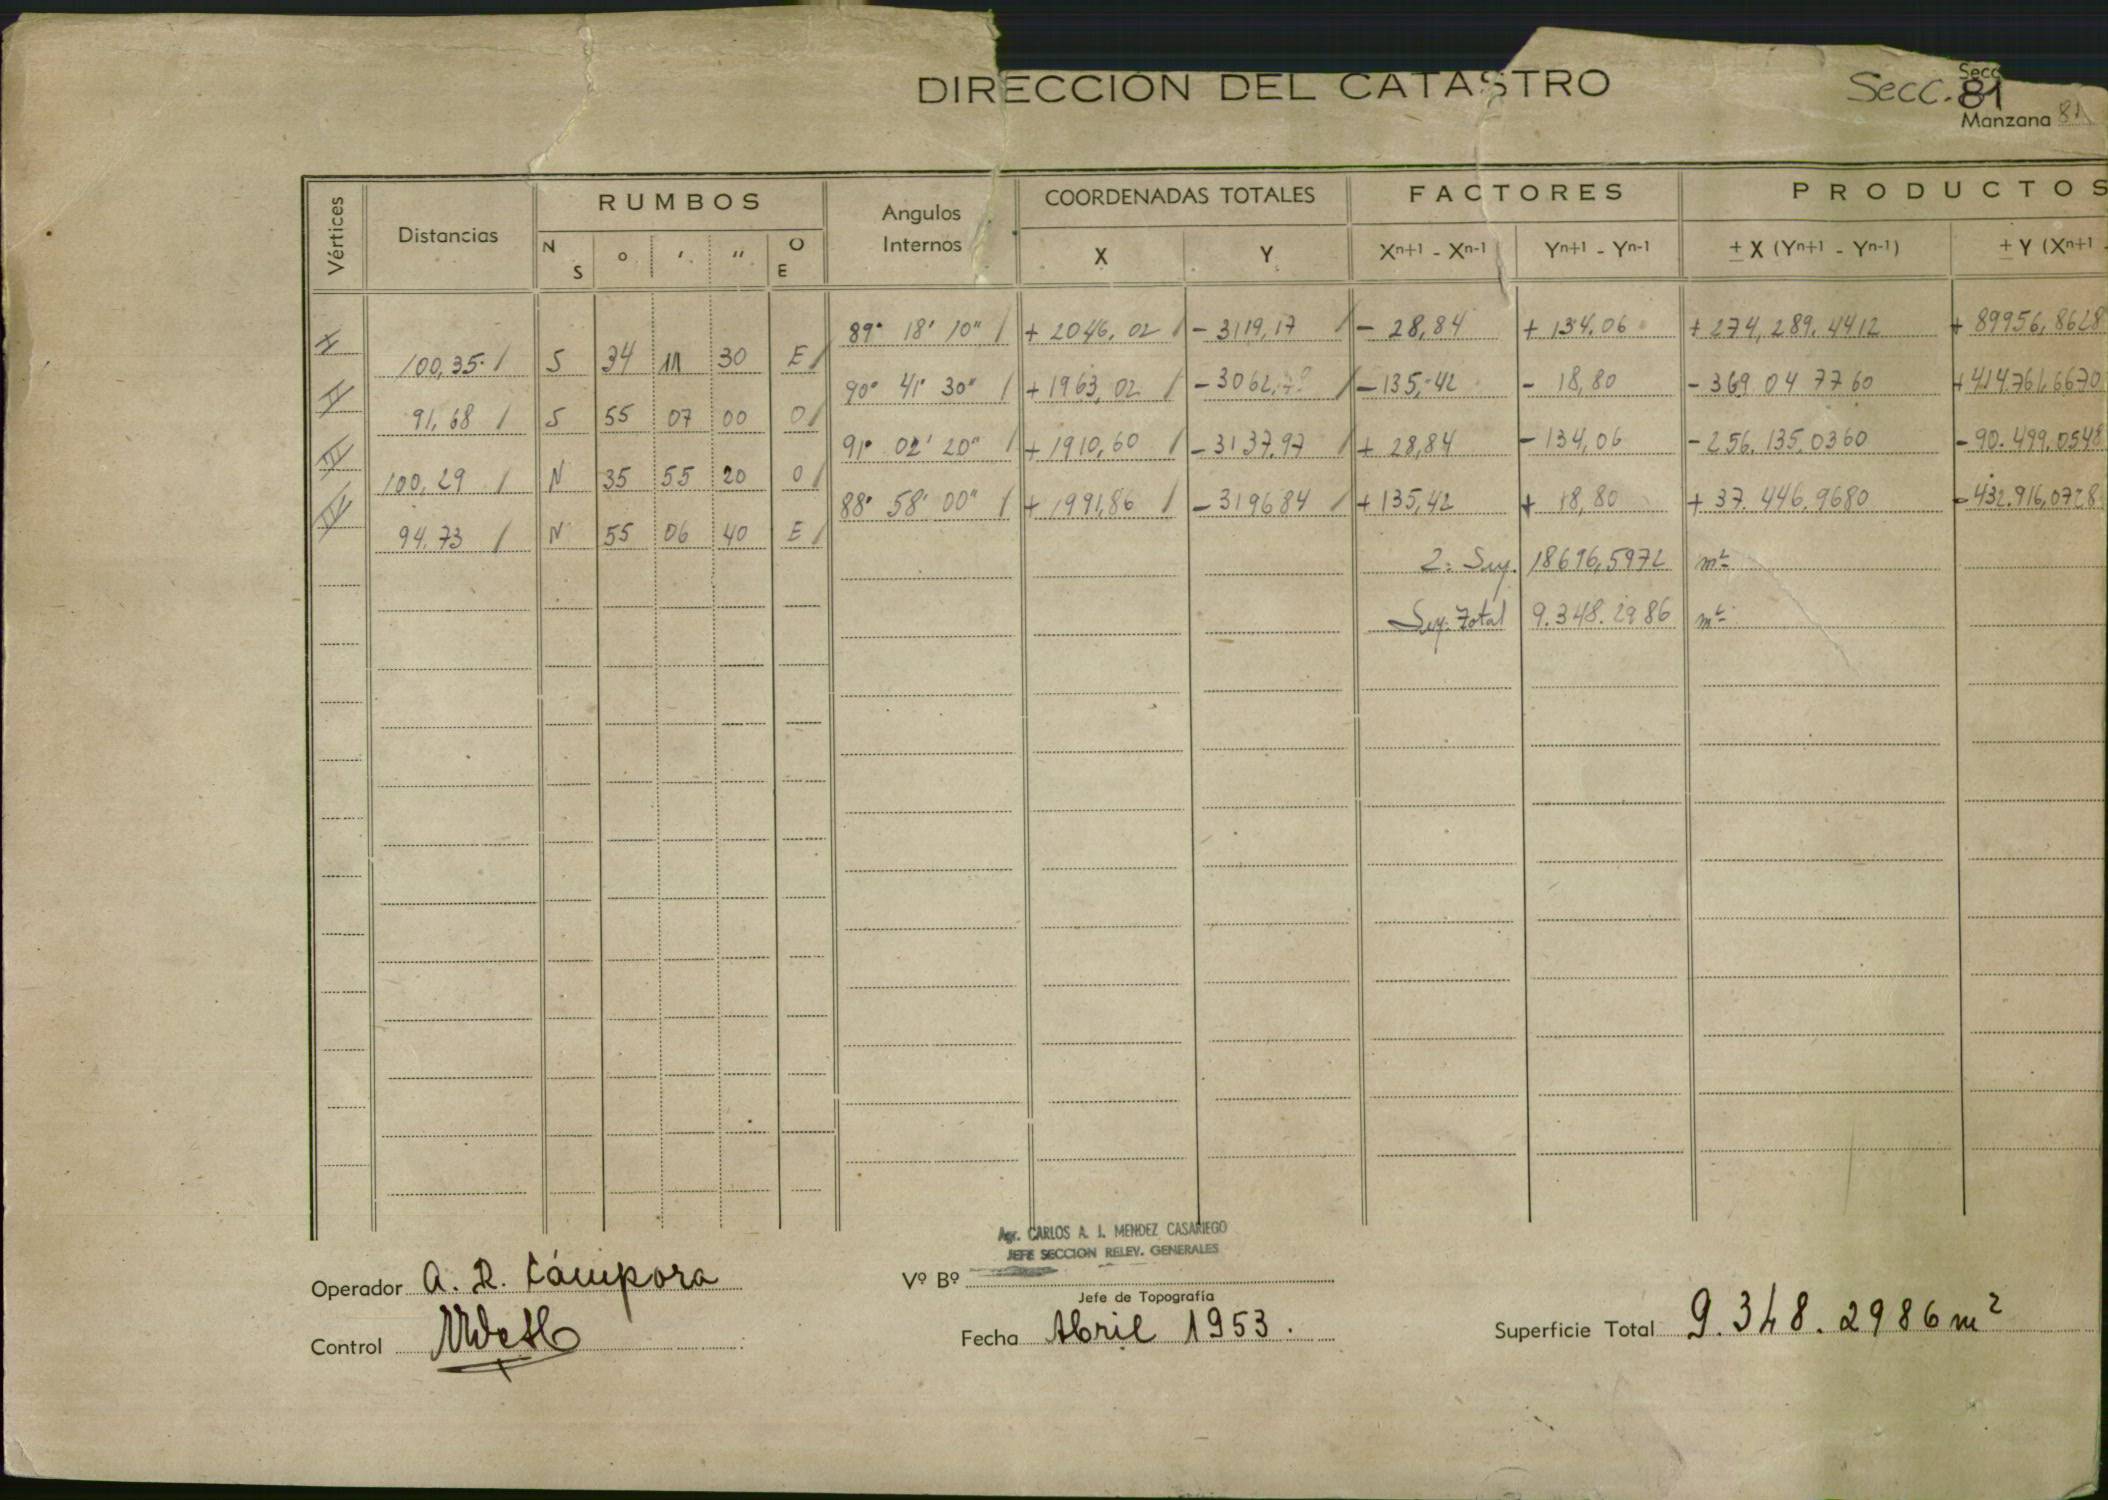 DIRECCION DEL CATASTRO
Secc. 81
Secc
Manzana 81
Vértices
Distancias
RUMBOS
N S
o
'
"
O E
Angulos Internos
COORDENADAS TOTALES
X
Y
FACTORES
Xn+1 - Xn-1
Yn+1 - Yn-1
PRODUCTOS
± X (Yn+1 - Yn-1)
± Y (Xn+1 -
I 89° 18' 10" + 2046,02 - 3119,17 - 28,84 + 134,06 + 274,289.4412 + 89956,8628
100,35 S 34 11 30 E
II 90° 41' 30" + 1963,02 - 3062,78 - 135,42 - 18,80 - 369 04 77 60 + 414.761,6670
91,68 S 55 07 00 O
III 91° 02' 20" + 1910,60 - 3137,97 + 28,84 - 134,06 - 256.135,0360 - 90.499,0548
100,29 N 35 55 20 O
IV 88° 58' 00" + 1991,86 - 3196,84 + 135,42 + 18,80 + 37.446,9680 - 432.916,0728
94,73 N 55 06 40 E
2. Sup. 18696,5972 m²
Sup. Total 9.348.2986 m²
Agr. CARLOS A. I. MENDEZ CASARIEGO
JEFE SECCION RELEV. GENERALES
Operador A. R. Cámpora
Vº Bº
Jefe de Topografía
Control
Fecha Abril 1953.
Superficie Total 9.348.2986 m²